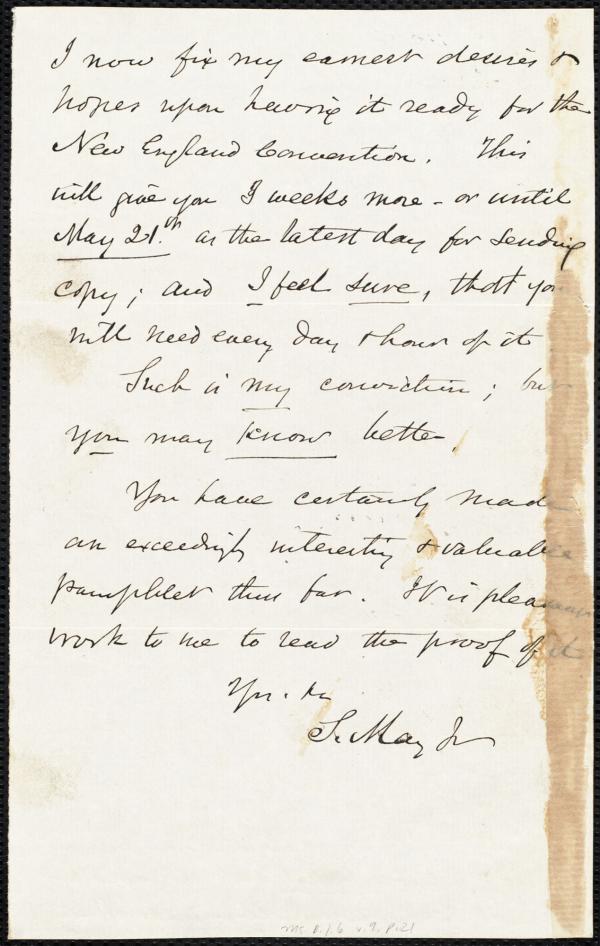 I now fix my earnest desires &
hopes upon having it ready for the
New England Convention. This
will give you 3 weeks more - or until
May 21.th as the latest day for sending
copy; and I feel sure, that you
will need every day & hour of it
Such is my conviction; but
you may know better.
You have certainly made
an exceedingly interesting & valuable
pamphlet thus far. It is pleasant
work to me to read the proof of it
Yrs. &c
S. May Jr
Ms. B.1.6 v.9. p.21